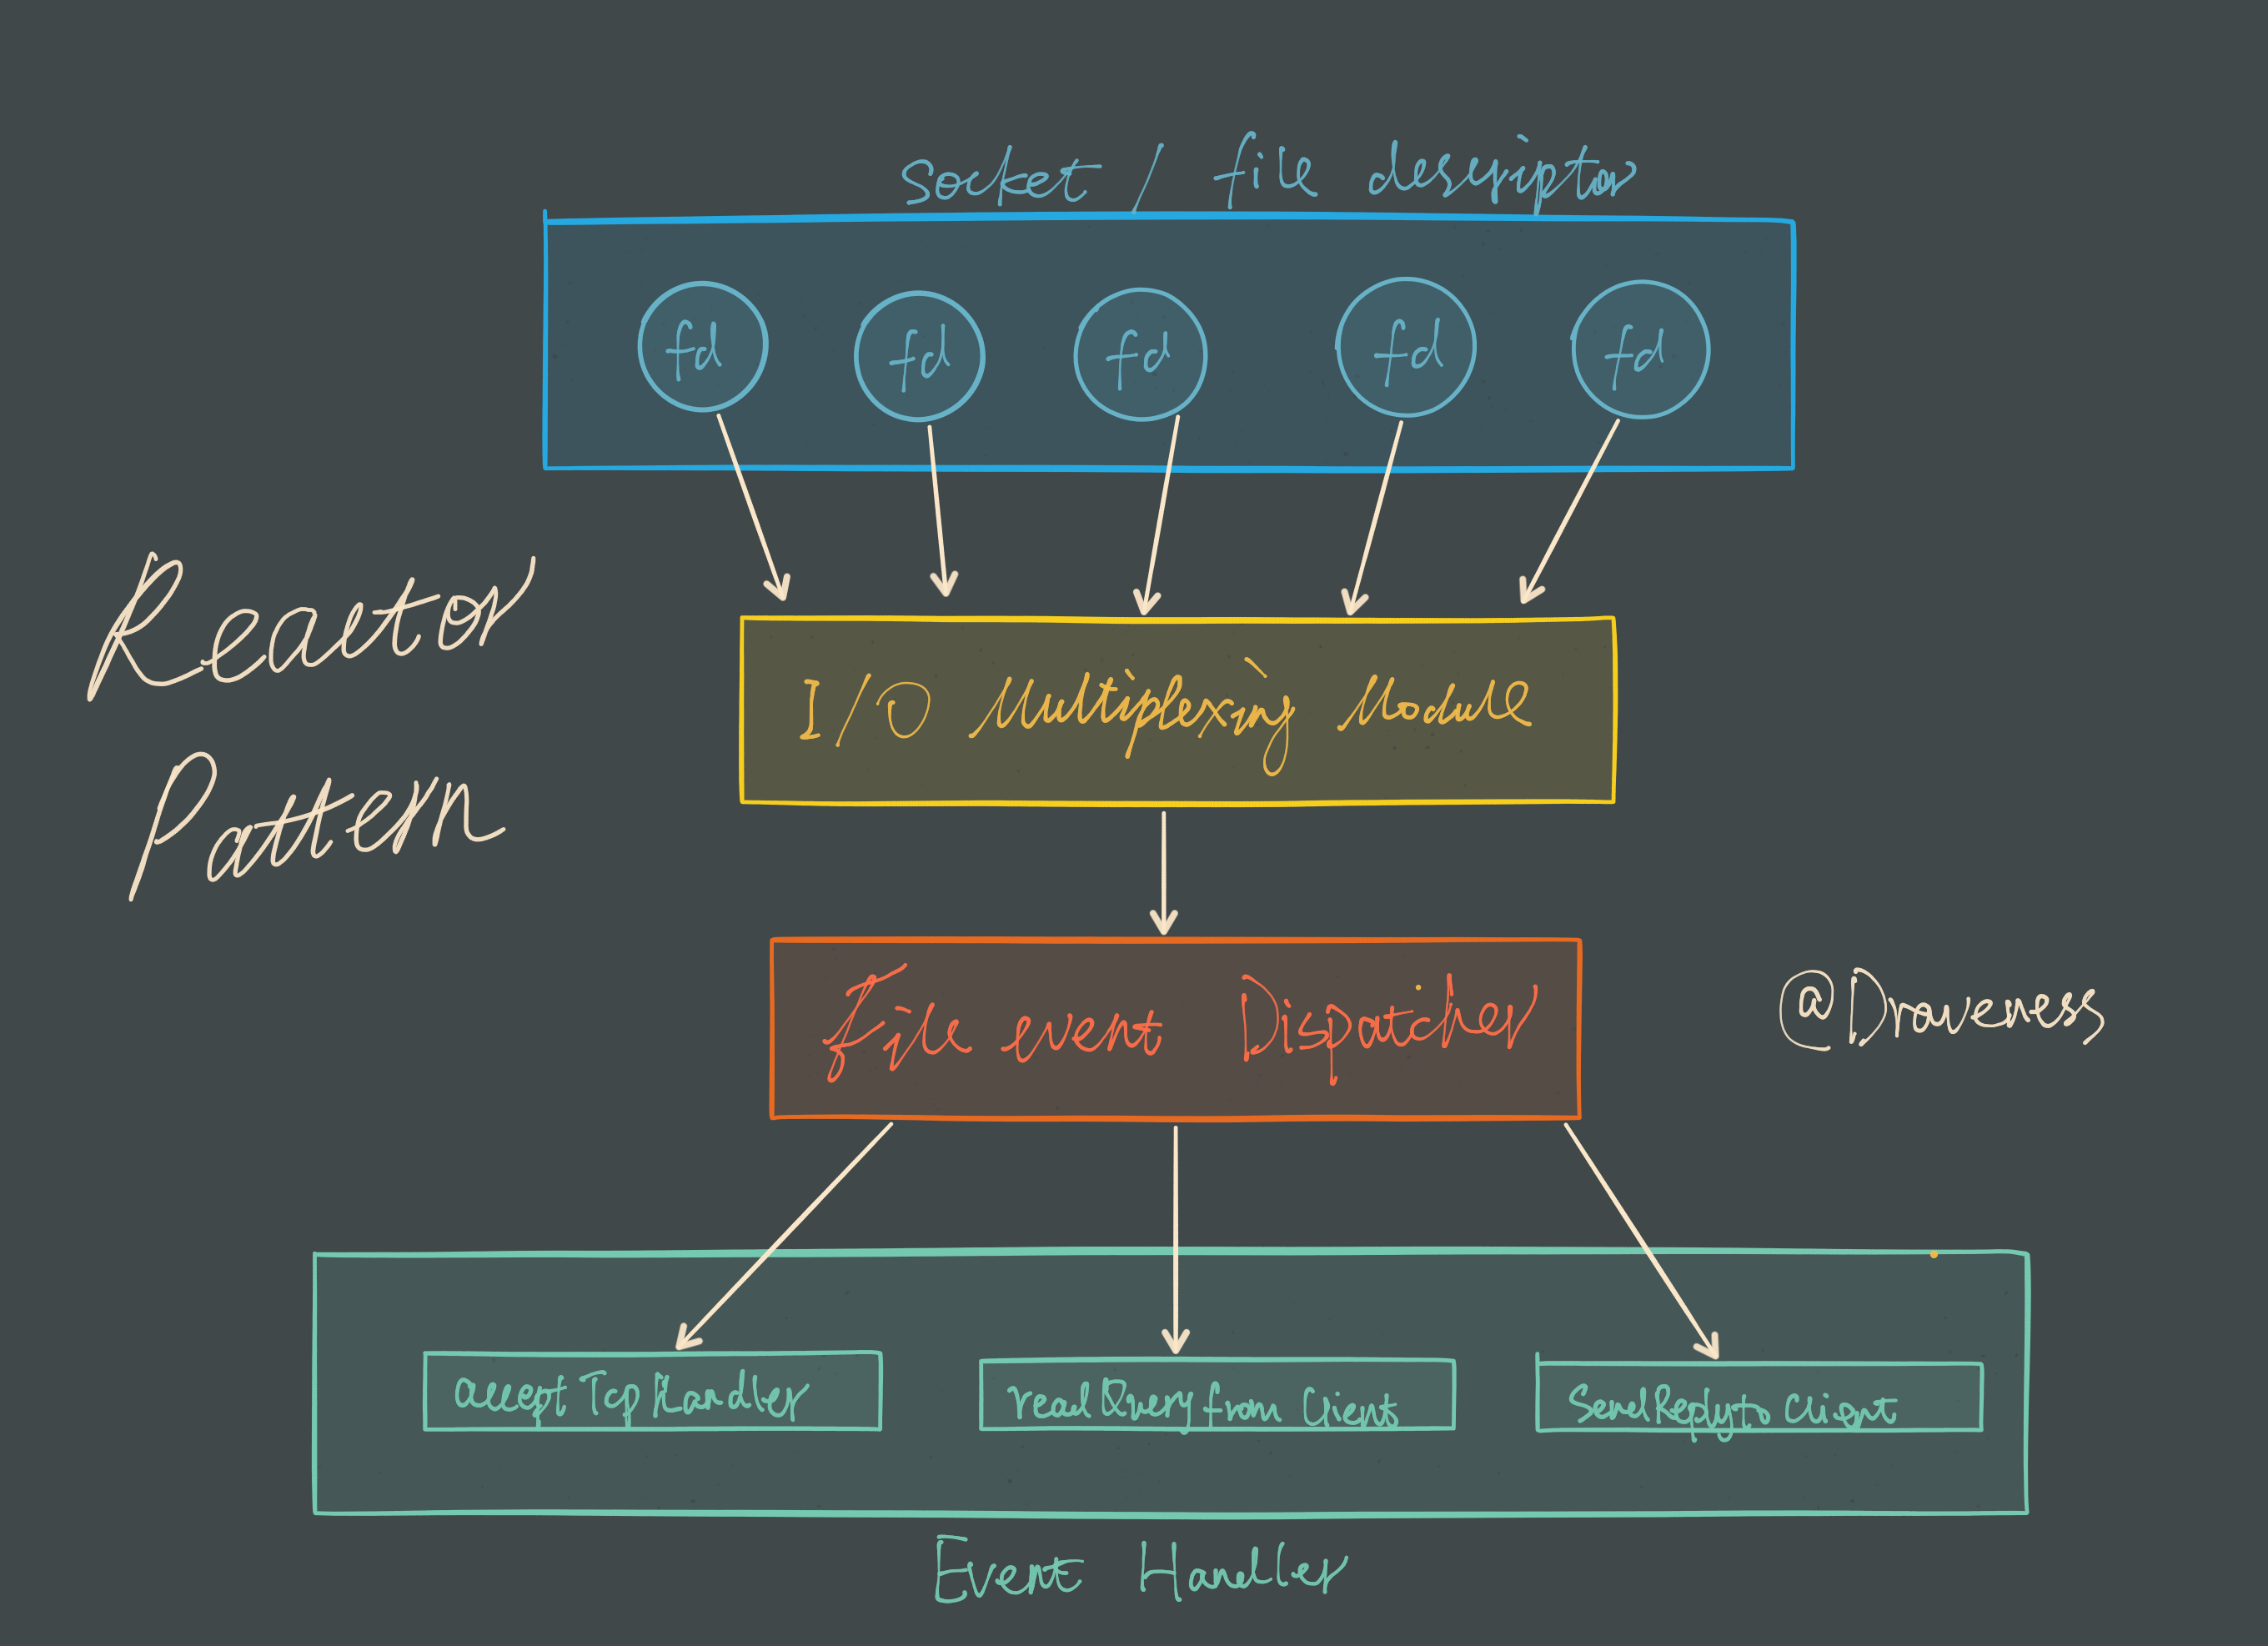 socket / file descriptor
fd fd fd fd fd
Reactor
Pattern
I/O Multiplexing Module
File event Dispatcher
@Draveness
acceptTcpHandler
readQueryFromClient
SendReplytoClient
Event Handler